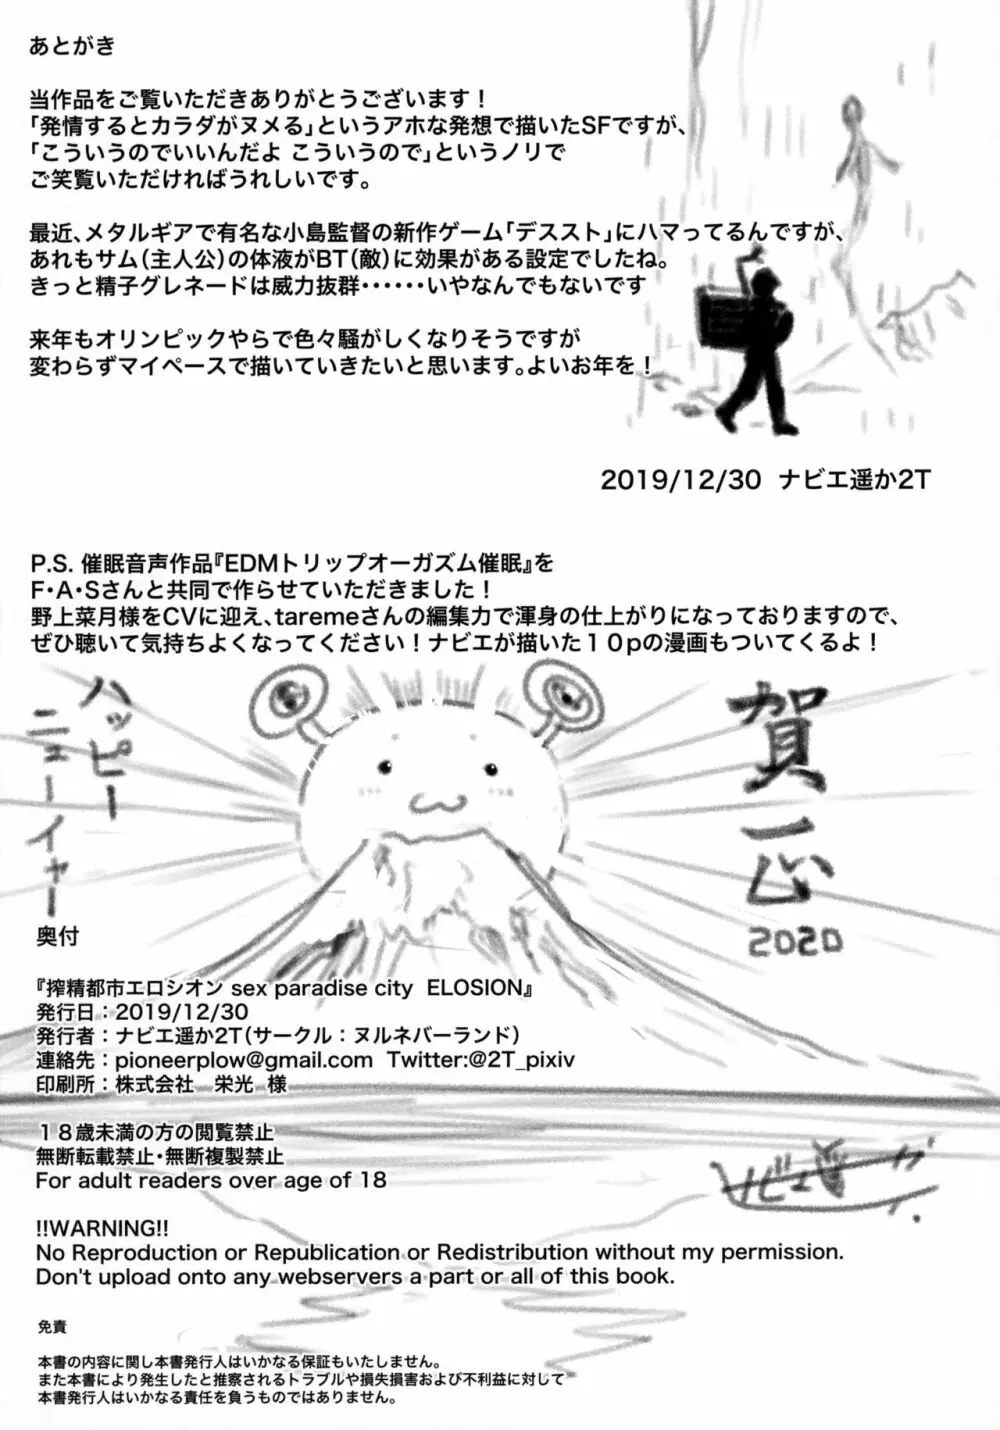 あとがき
当作品をご覧いただきありがとうございます！
「発情するとカラダがヌメる」というアホな発想で描いたSFですが、
「こういうのでいいんだよ こういうので」というノリで
ご笑覧いただければうれしいです。
最近、メタルギアで有名な小島監督の新作ゲーム「デススト」にハマってるんですが、
あれもサム（主人公）の体液がBT（敵）に効果がある設定でしたね。
きっと精子グレネードは威力抜群･･････いやなんでもないです
来年もオリンピックやらで色々騒がしくなりそうですが
変わらずマイペースで描いていきたいと思います。よいお年を！
2019/12/30 ナビエ遥か2T
P.S. 催眠音声作品『EDMトリップオーガズム催眠』を
F・A・Sさんと共同で作らせていただきました！
野上菜月様をCVに迎え、taremeさんの編集力で渾身の仕上がりになっておりますので、
ぜひ聴いて気持ちよくなってください！ナビエが描いた１０pの漫画もついてくるよ！
ハッピー
ニューイヤー
賀正
2020
奥付
『搾精都市エロシオン sex paradise city ELOSION』
発行日：2019/12/30
発行者：ナビエ遥か2T（サークル：ヌルネバーランド）
連絡先：pioneerplow@gmail.com Twitter:@2T_pixiv
印刷所：株式会社 栄光 様
１８歳未満の方の閲覧禁止
無断転載禁止・無断複製禁止
For adult readers over age of 18
!!WARNING!!
No Reproduction or Republication or Redistribution without my permission.
Don't upload onto any webservers a part or all of this book.
免責
本書の内容に関し本書発行人はいかなる保証もいたしません。
また本書により発生したと推察されるトラブルや損失損害および不利益に対して
本書発行人はいかなる責任を負うものではありません。